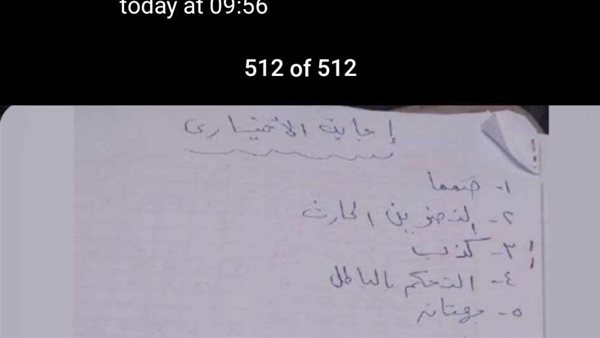 today at 09:56
512 of 512
إجابة الاختيارى
١- صمما
٢- النضر بن الحارث
٣- كذب
٤- التحكم بالباطل
٥- جهتان